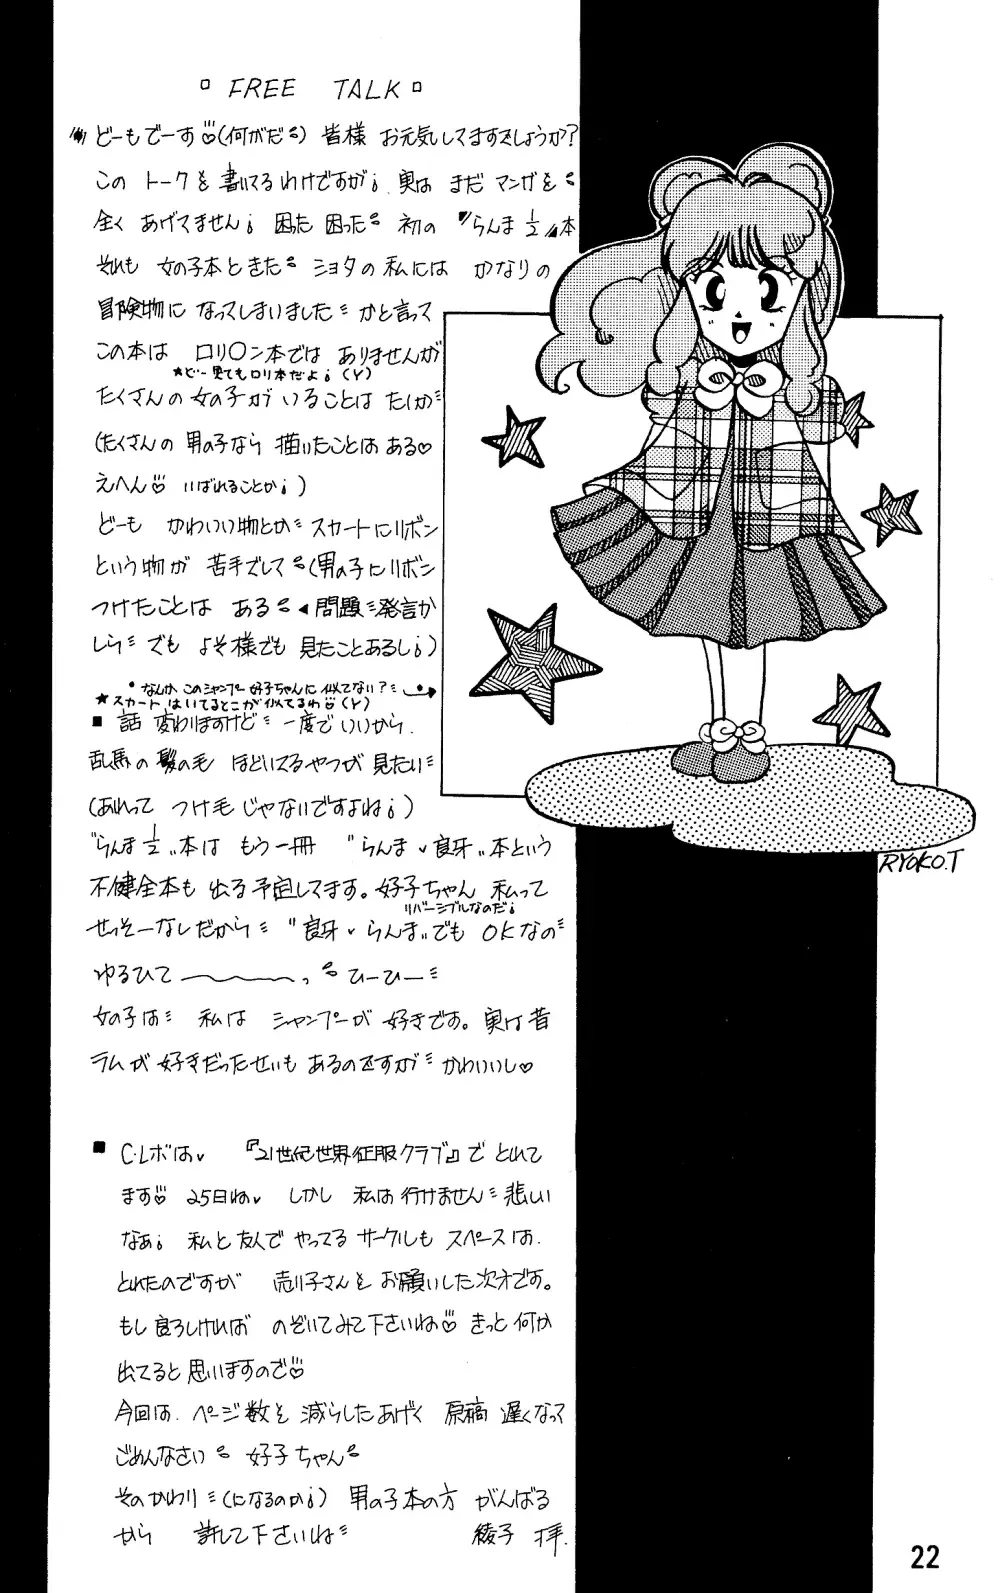 FREE TALK
どーもでーす♡(何がだ) 皆様 お元気してますでしょうか?
この トークを 書いてるわけですが、実は まだ マンガを
全く あげてません! 困った 困った 初の "らんま½"本
それも 女の子本ときた ショタの私には かなりの
冒険物に なってしまいました かと言って
この本は ロリ〇ン本では ありませんが
★どー見てもロリ本だよ!(Y)
たくさんの 女の子が いることは たしか
(たくさんの 男の子なら 描いたことはある♡
えへん♡ いばれることか!)
どーも かわいい物とか スカートにリボン
という物が 苦手でして(男の子にリボン
つけたことは ある ◀問題発言か
しら でも よそ様でも 見たことあるし!)
・なんか このシャンプー 好子ちゃんに似てない?
★スカート はいてるとこが似てるわ♡(Y)
■ 話 変わりますけど 一度でいいから
乱馬の 髪の毛 ほどいてるやつが 見たい
(あれって つけ毛じゃないですよね!)
"らんま½"本は もう一冊 "らんま♥良牙"本という
不健全本も 出る予定してます。好子ちゃん 私って
リバーシブルなのだ!
せっそーなしだから "良牙♥らんま"でも OKなの
ゆるひて〜〜〜っ ひーひー
女の子は 私は シャンプーが 好きです。実は昔
ラムが 好きだったせいも あるのですが かわいいし♡
■ C・レボは♥ 『21世紀世界征服クラブ』で とれて
ます♡ 25日ね♥ しかし 私は行けません 悲しい
なぁ! 私と友人で やってる サークルも スペースは
とれたのですが 売り子さんを お願いした次才です。
もし良ろしければ のぞいてみて下さいね♡ きっと 何か
出てると 思いますので♡
今回は ページ数を 減らしたあげく 原稿 遅くなって
ごめんなさい 好子ちゃん
そのかわり(になるのか!) 男の子本の方 がんばる
から 許して下さいね 綾子 拝.
RYOKO.T
22